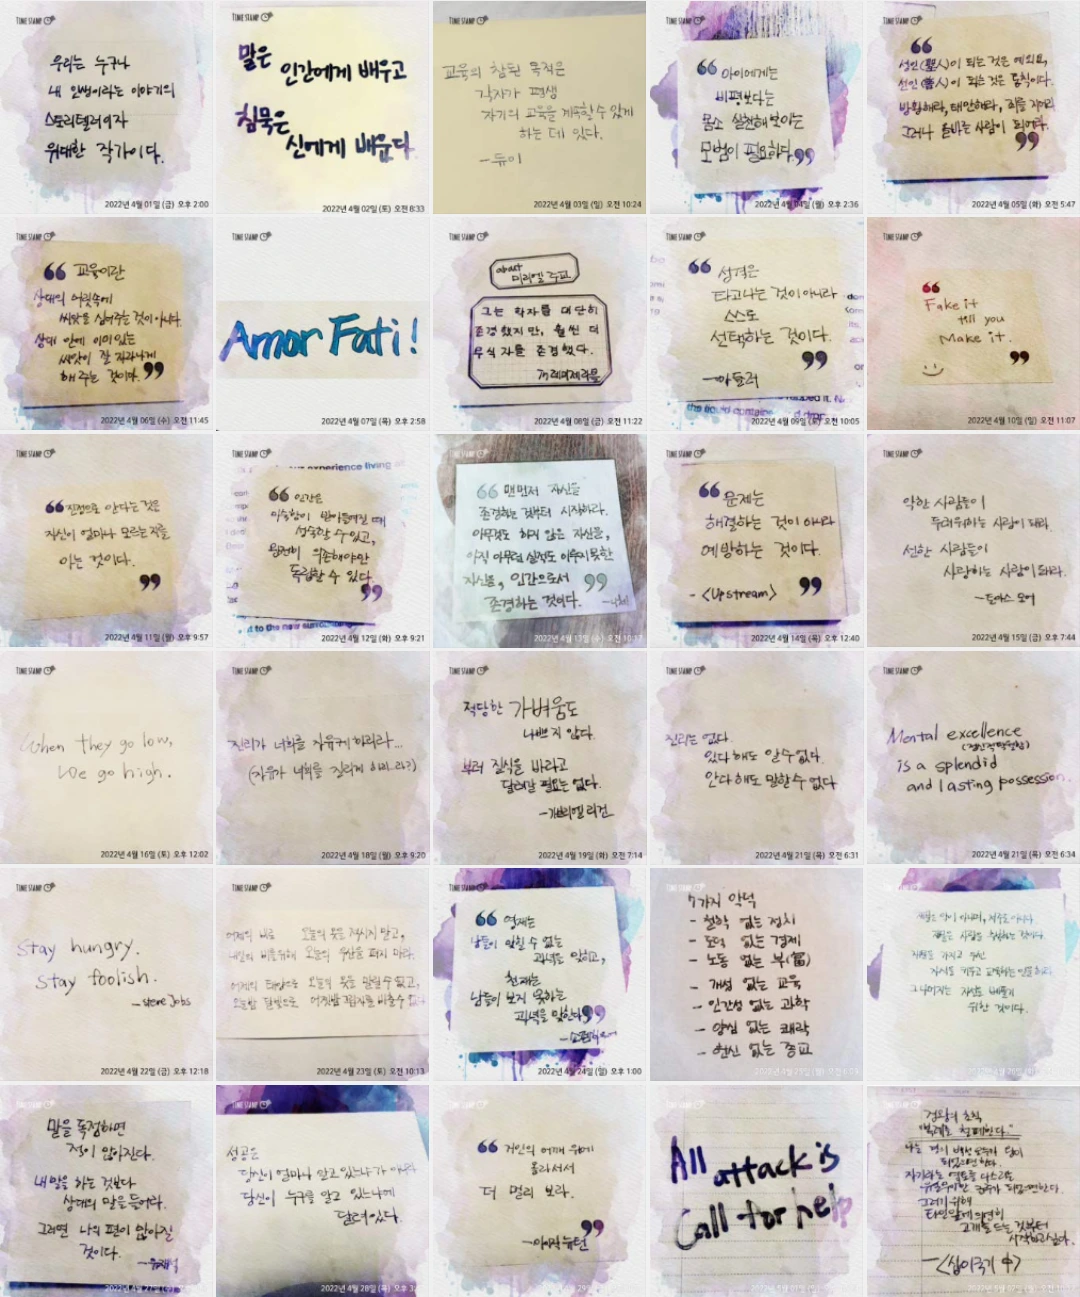 TIME STAMP
우리는 누구나
내 인생이라는 이야기의
스토리텔러이자
위대한 작가이다.
2022년 4월 01일 (금) 오후 2:00
말은
인간에게 배우고
침묵은
신에게 배운다.
2022년 4월 02일 (토) 오전 8:33
TIME STAMP
교육의 참된 목적은
각자가 평생
자기의 교육을 계속할 수 있게
하는 데 있다.
-듀이
2022년 4월 03일 (일) 오전 10:24
TIME STAMP
❝ 아이에게는
비평보다는
몸소 실천해 보이는
모범이 필요하다. ❞
2022년 4월 04일 (월) 오후 2:36
TIME STAMP
❝
성인(聖人)이 되는 것은 예외요,
선인(善人)이 되는 것은 통칙이다.
방황해라, 태만해라, 죄를 지어라
그러나 올바른 사람이 되어라. ❞
2022년 4월 05일 (화) 오전 5:47
TIME STAMP
❝ 교육이란
상대의 머릿속에
씨앗을 심어주는 것이 아니다.
상대 안에 이미 있는
씨앗이 잘 자라나게
해 주는 것이다. ❞
2022년 4월 06일 (수) 오전 11:45
TIME STAMP
Amor Fati!
2022년 4월 07일 (목) 오후 2:58
TIME STAMP
about
미리엘 주교
그는 학자를 대단히
존경했지만, 훨씬 더
무식자를 존경했다.
2022년 4월 08일 (금) 오전 11:22
TIME STAMP
❝ 성격은
타고나는 것이 아니라
스스로
선택하는 것이다. ❞
-아들러
2022년 4월 09일 (토) 오전 10:05
TIME STAMP
❝
Fake it
till you
Make it. ❞
2022년 4월 10일 (일) 오전 11:07
TIME STAMP
❝ 진정으로 안다는 것은
자신이 얼마나 모르는지를
아는 것이다. ❞
2022년 4월 11일 (월) 오후 9:57
TIME STAMP
experience living
❝ 인간은
미숙함이 받아들여질 때
성숙할 수 있고,
완전히 의존해야만
독립할 수 있다. ❞
2022년 4월 12일 (화) 오후 9:21
TIME STAMP
❝ 맨먼저 자신을
존경하는 것부터 시작하라.
아무것도 하지 않은 자신을,
아직 아무런 실적도 이루지 못한
자신을, 인간으로서
존경하는 것이다. ❞ -니체
TIME STAMP
❝ 문제는
해결하는 것이 아니라
예방하는 것이다.
- <Upstream> ❞
2022년 4월 14일 (목) 오후 12:40
TIME STAMP
악한 사람들이
두려워하는 사람이 돼라.
선한 사람들이
사랑하는 사람이 돼라.
-토마스 모어
2022년 4월 15일 (금) 오후 7:44
TIME STAMP
When they go low,
We go high.
2022년 4월 16일 (토) 오후 12:02
TIME STAMP
진리가 너희를 자유케 하리라...
(자유가 너희를 진리케 하리라?)
2022년 4월 18일 (월) 오후 9:20
TIME STAMP
적당한 가벼움도
나쁘지 않다.
부러 질식을 바라고
달려갈 필요는 없다.
-가브리엘 리건
2022년 4월 19일 (화) 오후 7:14
TIME STAMP
진리는 없다.
있다 해도 알 수 없다.
안다 해도 말할 수 없다.
2022년 4월 21일 (목) 오후 6:31
TIME STAMP
Mental excellence
(정신적 탁월함)
is a splendid
and lasting possession.
2022년 4월 21일 (목) 오후 6:34
TIME STAMP
Stay hungry.
Stay foolish.
-Steve Jobs
2022년 4월 22일 (금) 오후 12:18
TIME STAMP
어제의 비로 오늘의 옷을 적시지 말고,
내일의 비를 위해 오늘의 우산을 펴지 마라.
어제의 태양으로 오늘의 옷을 말릴 수 없고,
오늘밤 달빛으로 어젯밤 그림자를 비출 수 없다.
2022년 4월 23일 (토) 오후 10:13
TIME STAMP
❝ 영재는
남들이 맞힐 수 없는
과녁을 맞히고,
천재는
남들이 보지 못하는
과녁을 맞힌다. ❞
-쇼펜하우어
2022년 4월 24일 (일) 오후 1:00
TIME STAMP
7가지 악덕
- 철학 없는 정치
- 도덕 없는 경제
- 노동 없는 부(富)
- 개성 없는 교육
- 인간성 없는 과학
- 양심 없는 쾌락
- 헌신 없는 종교
TIME STAMP
위한 것이다.
TIME STAMP
말을 독점하면
적이 많아진다.
내 말을 하는 것보다
상대의 말을 들어라.
그러면 나의 편이 많아질
것이다.
-유재석
TIME STAMP
성공은
당신이 얼마나 알고 있느냐가 아니라
당신이 누구를 알고 있느냐에
달려있다.
2022년 4월 28일 (목) 오후
TIME STAMP
❝ 거인의 어깨 위에
올라서서
더 멀리 보라.
-아이작 뉴턴 ❞
TIME STAMP
All attack is
Call for help
나는
-<십이국기 中>